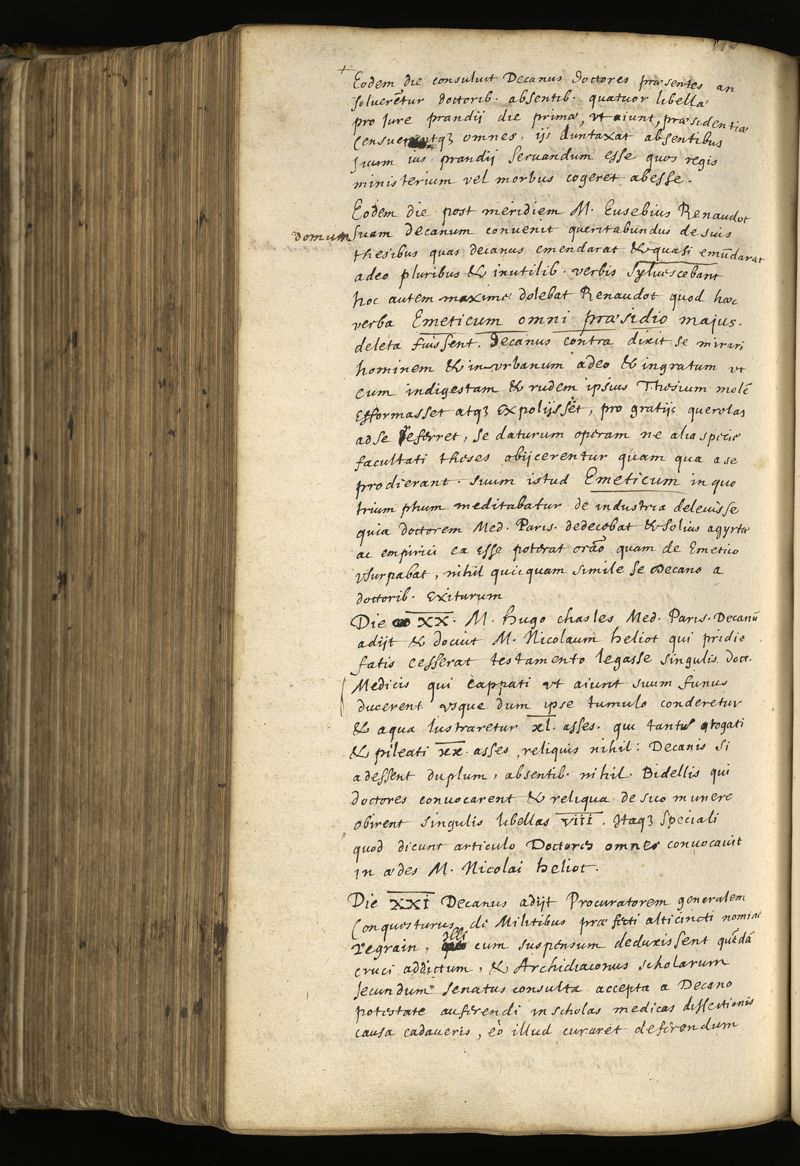 Eodem die consuluit Decanus doctores præsentes an
soluerētur doctorib. absentib. quatuor libellæ
pro Jure prandij die prima, vt aiunt, præsidentiæ
omnes, ijs duntaxat absentibus
suum ius prandij seruandum esse quos regis
ministerium vel morbus cogeret abesse.
Eodem die post meridiem M. Eusebius Renaudot
domum
suam decanum conuenit queritabundus de suis
thesibus quas decanus emendarat & quasi emūdarat
adeo pluribus & inutilib. verbis syluescebant
hoc autem maxime dolebat Renaudot quod hæc
verba Emeticum omni præsidio majus.
deleta fuissent. Decanus contra dixit se mirari
hominem & in-vrbanum adeo & ingratum vt
cum indigestam & rudem ipsius Thesium molē
efformasset atqȝ expolijsset, pro gratijs querelas
ad se referret, se daturum operam ne alia specie
facultati theses obijcerentur quam qua a se
prodierant. suum istud Emeticum in quo
triumphum meditabatur de industria deleuisse
quia doctorem Med. Paris. dedecebat & solius agyrtæ
ac empirici ea esse poterat orāo quam de Emetico
vsurpabat, nihil quicquam simile se Decano a
doctorib. exiturum
Die XX. M. Hugo chasles Med. Paris. Decanū
adijt & docuit M. Nicolaum heliot qui pridie
fatis cesserat testamento legasse singulis doct.
Medicis qui cappati vt aiunt suum funus
ducerent vsque dum ipse tumulo conderetur
& aqua lustraretur xl. asses. qui tantū togati
& pileati xx. asses reliquis nihil: Decanis si
adessent duplum, absentib. nihil. Bidellis qui
doctores conuocarent & reliqua de suo munere
obirent singulis libellas VIII. Itaqȝ speciali
quod dicunt articulo Doctores omnes conuocauit
in ædes M. Nicolai heliot.
Die XXI Decanus adijt Procuratorem generalem
Conquesturus de Militibus præfecti alticincti nomine
regrain, illi cum suspensum deduxissent quēdā
cruci addictum, & Archidiaconus scholarum
secundum senatus consulta accepta a Decano
potestate auferendi in scholas medicas dissectionis
causa cadaueris, eò illud curaret deferendum